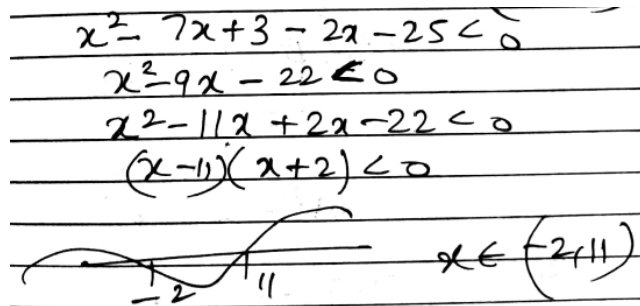 x² - 7x + 3 - 2x - 25 < 0
x² - 9x - 22 < 0
x² - 11x + 2x - 22 < 0
(x - 11)(x + 2) < 0
-2 11 x ∈ (-2, 11)